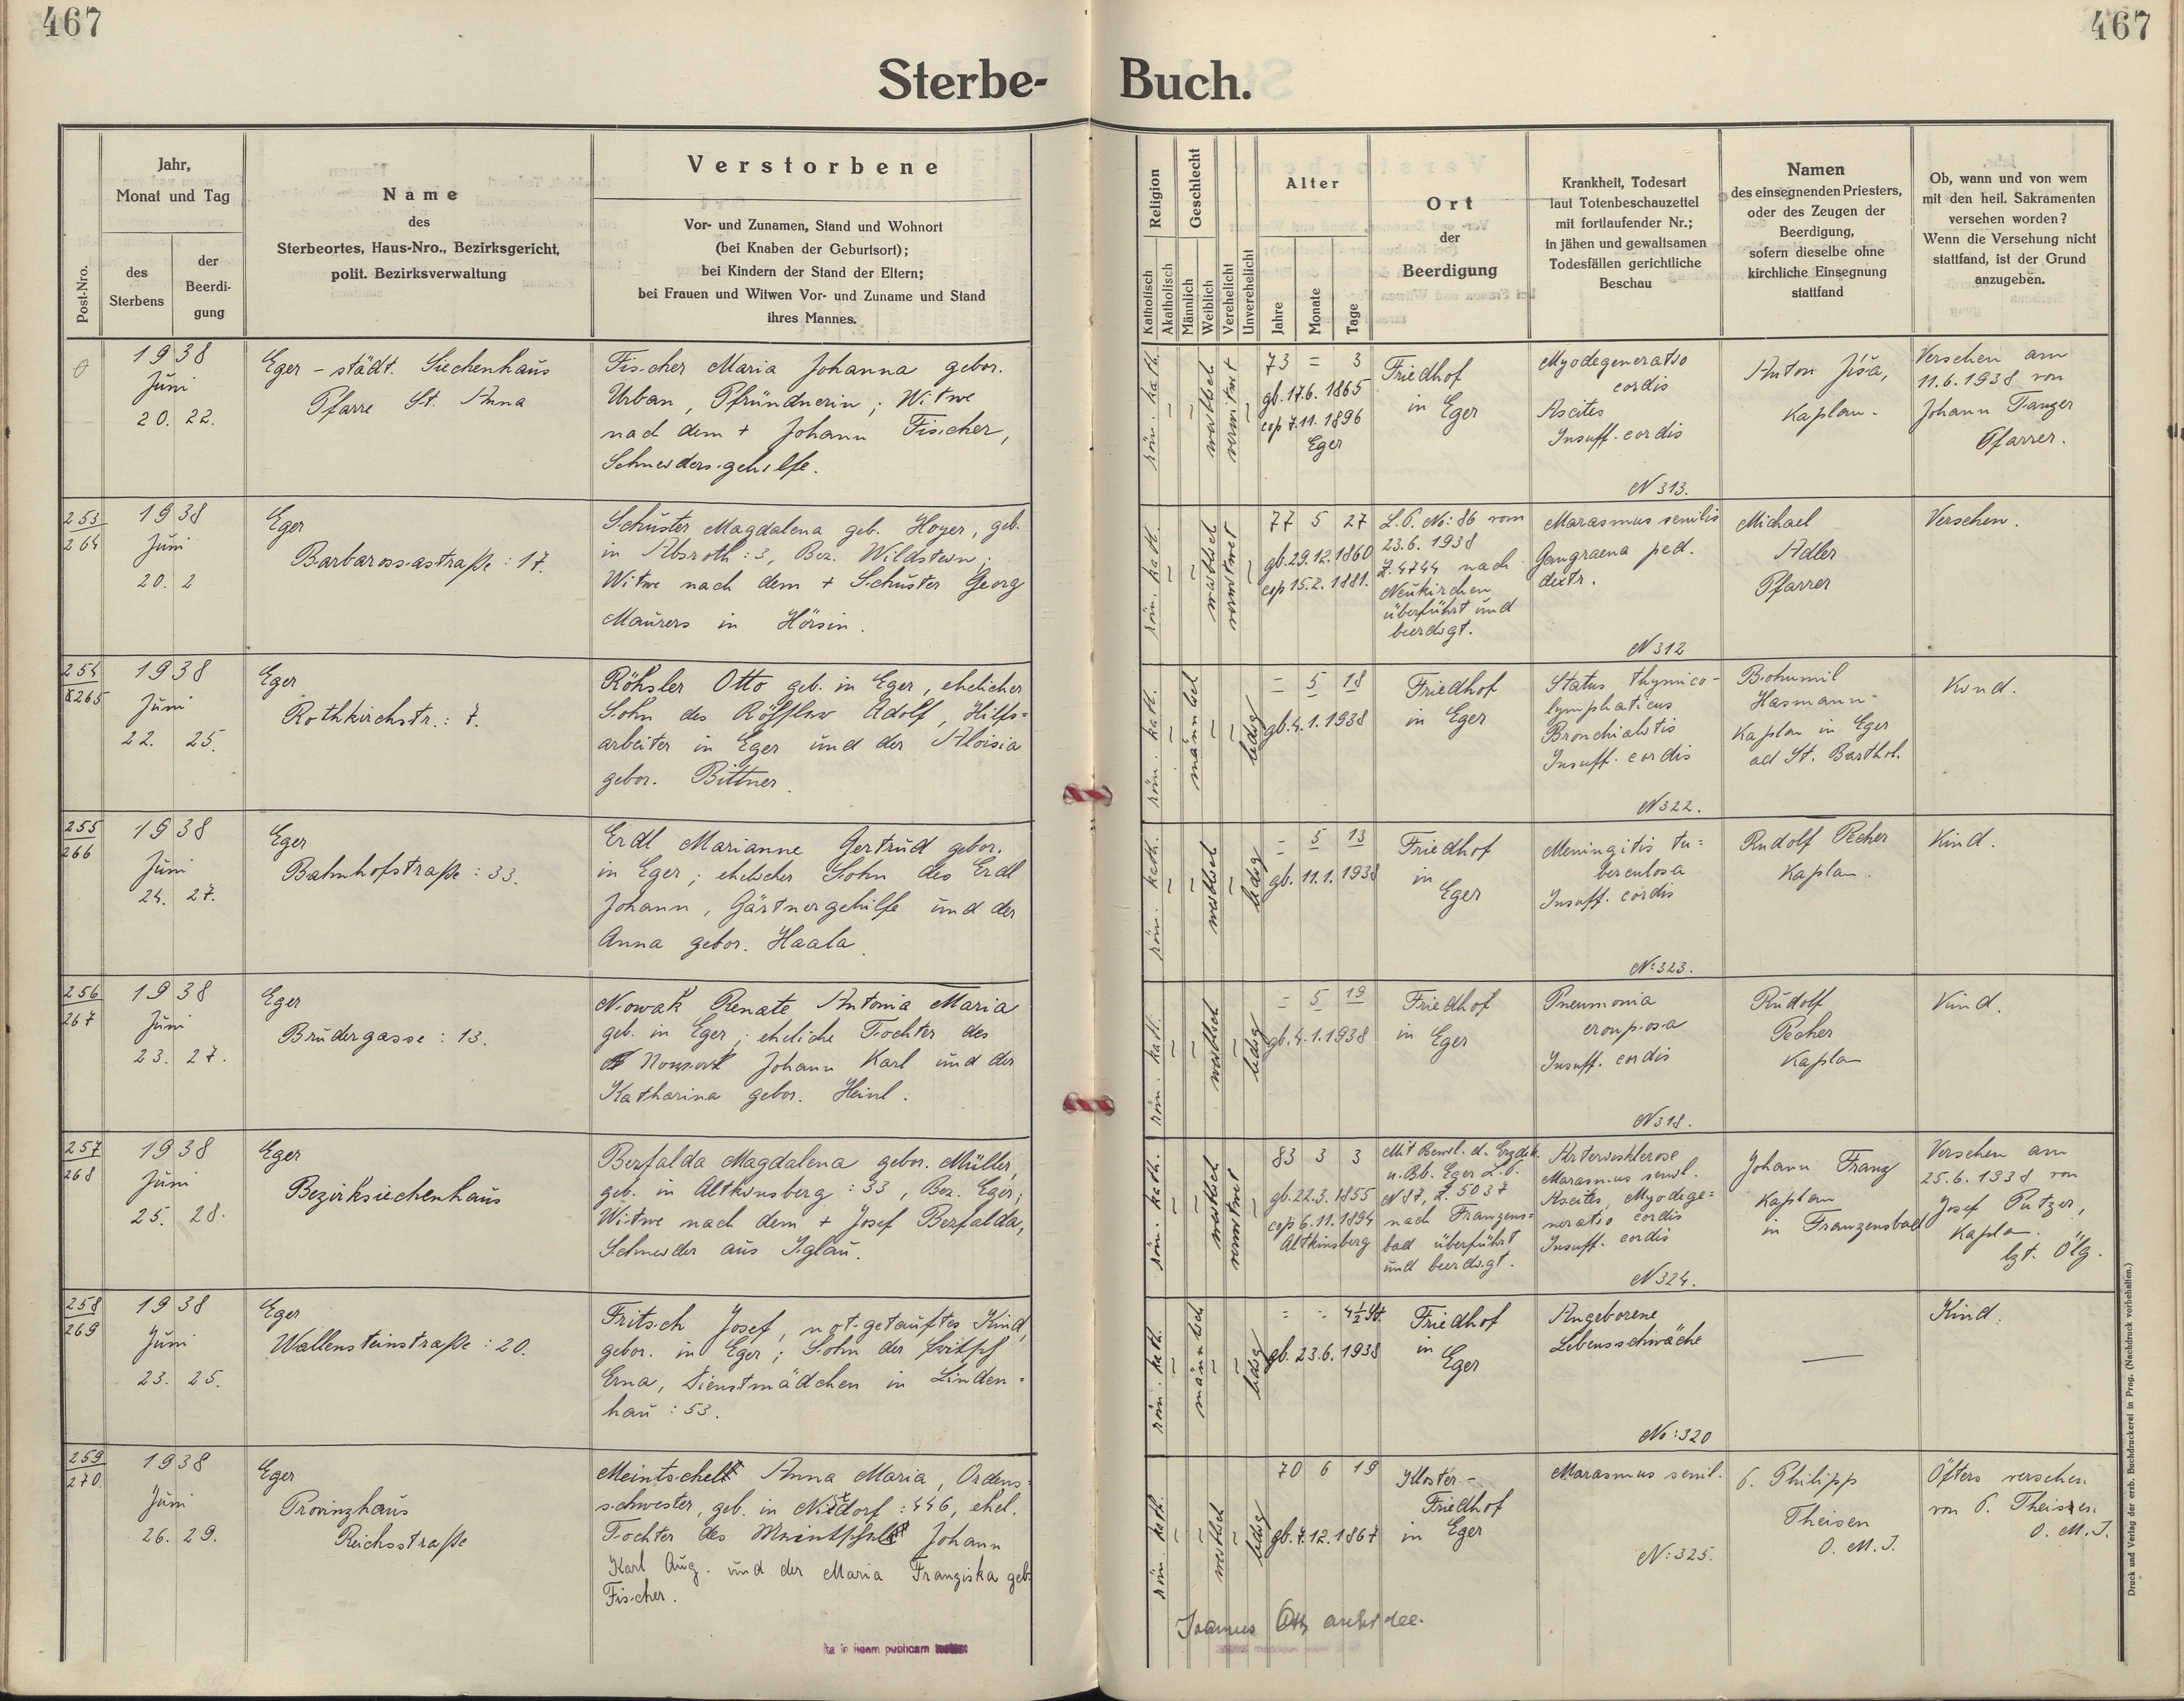 467
467
Sterbe-Buch.
Post-Nro.
Jahr,
Monat und Tag
des
Sterbens
der
Beerdi-
gung
Name
des
Sterbeortes, Haus-Nro., Bezirksgericht,
polit. Bezirksverwaltung
Verstorbene
Vor- und Zunamen, Stand und Wohnort
(bei Knaben der Geburtsort);
bei Kindern der Stand der Eltern;
bei Frauen und Witwen Vor- und Zuname und Stand
ihres Mannes.
Religion
Katholisch
Akatholisch
Geschlecht
Männlich
Weiblich
Verehelicht
Unverehelicht
Alter
Jahre
Monate
Tage
Ort
der
Beerdigung
Krankheit, Todesart
laut Totenbeschauzettel
mit fortlaufender Nr.;
in jähen und gewaltsamen
Todesfällen gerichtliche
Beschau
Namen
des einsegnenden Priesters,
oder des Zeugen der
Beerdigung,
sofern dieselbe ohne
kirchliche Einsegnung
stattfand
Ob, wann und von wem
mit den heil. Sakramenten
versehen worden?
Wenn die Versehung nicht
stattfand, ist der Grund
anzugeben.
0
1938
Juni
20. 22.
Eger - städt. Siechenhaus
Pfarre St. Anna
Fischer Maria Johanna gebor.
Urban, Pfründnerin; Witwe
nach dem + Johann Fischer,
Schneidersgehilfe.
röm. kath.
weiblich
verwitwet
73 = 3
gb. 17.6. 1865
cop 7.11. 1896
Eger
Friedhof
in Eger
Myodegeneratio
cordis
Ascites
Insuff. cordis
N 313.
Anton Jiša,
Kaplan.
Versehen am
11.6.1938 von
Johann Tanzer
Pfarrer.
253
264
1938
Juni
20. 2
Eger
Barbarossastraße: 17.
Schuster Magdalena geb. Hoyer, geb.
in Absroth: 3, Bez. Wildstein;
Witwe nach dem + Schuster Georg
Maurers in Hörsin.
röm. kath.
weiblich
verwitwet
77 5 27
gb. 29.12.1860
cop 15.2.1881.
L.P. No: 86 vom
23.6. 1938
Z. 4744 nach
Neukirchen
überführt und
beerdigt.
Marasmus senilis
Gangraena ped.
dextr.
N 312
Michael
Adler
Pfarrer
Versehen.
254
265
1938
Juni
22. 25.
Eger
Rothkirchstr.: 7.
Röhsler Otto geb. in Eger, ehelicher
Sohn des Adolf, Hilfs=
arbeiter in Eger und der Aloisia
gebor. Bittner.
röm. kath.
männlich
ledig
= 5 18
gb. 4.1.1938
Friedhof
in Eger
Status thymico-
lymphaticus
Bronchialitis
Insuff. cordis
N 322.
Bohumil
Hasmann
Kaplan in Eger
ad St. Barthol.
Kind.
255
266
1938
Juni
24. 27.
Eger
Bahnhofstraße: 33.
Erdl Marianne Gertrud gebor.
in Eger; ehelicher Sohn des Erdl
Johann, Gärtnergehilfe und der
Anna gebor. Haala.
röm. kath.
weiblich
ledig
= 5 13
gb. 11.1. 1938
Friedhof
in
Eger
Meningitis tu=
berculosa
Insuff. cordis
N:323.
Rudolf Pecher
Kaplan.
Kind.
256
267
1938
Juni
23. 27.
Eger
Brudergasse: 13.
Nowak Renate Antonia Maria
geb. in Eger; eheliche Tochter des
Nowak Johann Karl und der
Katharina gebor. Heinl.
röm. kath.
weiblich
ledig
= 5 19
gb. 4.1.1938
Friedhof
in Eger
Pneumonia
crouposa
Insuff. cordis
N 318.
Rudolf
Pecher
Kaplan
Kind.
257
268
1938
Juni
25. 28.
Eger
Bezirksiechenhaus
Berfalda Magdalena gebor. Müller,
geb. in Altkinsberg: 33, Bez. Eger;
Witwe nach dem + Josef Berfalda,
Schneider aus Iglau.
röm. kath.
weiblich
verwitwet
83 3 3
gb. 22.3. 1855
cop 6.11. 1894
Altkinsberg
Mit Bewil. d. Erzdek.
u. Bb. Eger L.P.
N 87, Z. 5037
nach Franzens=
bad überführt
und beerdigt.
Arteriosklerose
Marasmus senil.
Ascites, Myodege=
neratio cordis
Insuff. cordis
N 324.
Johann Franz
Kaplan
in Franzensbad
Versehen am
25.6.1938 von
Josef Putzer,
Kaplan.
lgt. Ölg.
258
269
1938
Juni
23. 25.
Eger
Wallensteinstraße: 20.
Fritsch Josef, not-getauftes Kind,
gebor. in Eger; Sohn der Fritsch
Erna, Dienstmädchen in Linden=
hau: 53.
röm. kath.
männlich
ledig
= = 4½ St.
gb. 23.6. 1938
Friedhof
in
Eger
Angeborene
Lebensschwäche
No: 320
Kind.
259
270.
1938
Juni
26. 29.
Eger
Provinzhaus
Reichsstraße
Meintschelt Anna Maria, Ordens=
schwester, geb. in Nixdorf: 446, ehel.
Tochter des Meintschelt Johann
Karl Aug. und der Maria Franziska geb.
Fischer.
röm. kath.
weiblich
ledig
70 6 19
gb. 7.12.1867
Kloster-
Friedhof
in Eger
Marasmus senil.
N:325.
P. Philipp
Theisen
O. M. I.
Öfters versehen
von P. Theissen
O. M. I.
Ita in fidem publicam
Druck und Verlag der erzb. Buchdruckerei in Prag. (Nachdruck vorbehalten.)